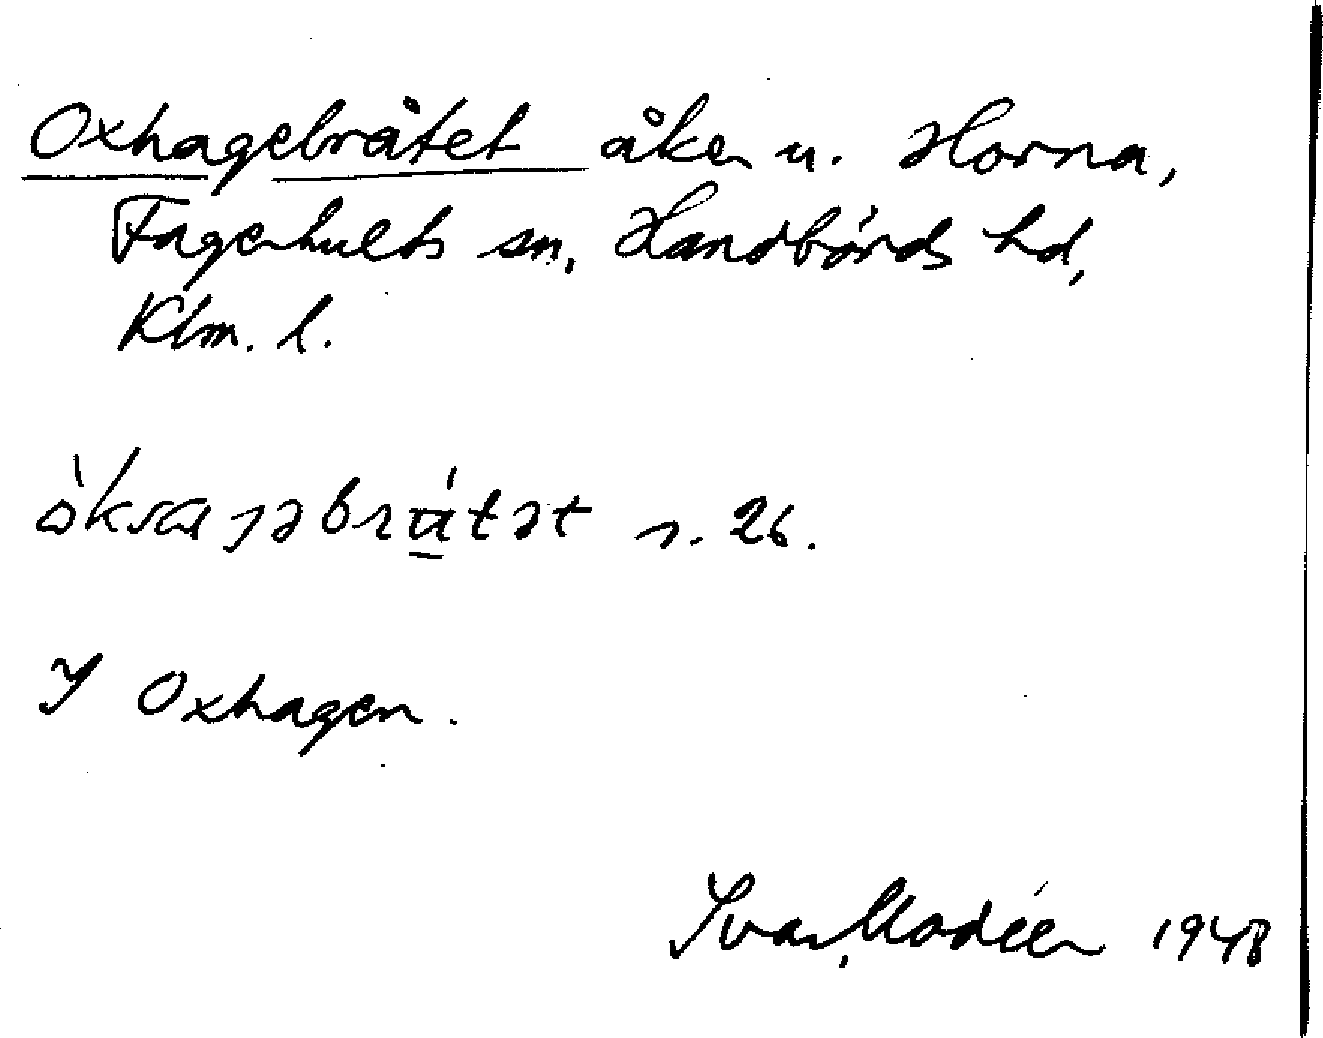 Oxhagebråtet åker u. Horna,
Fagerhults sn, Handbörds hd,
Klm. l.
n. 26.
I Oxhagen.
Ivar Modéer 1948